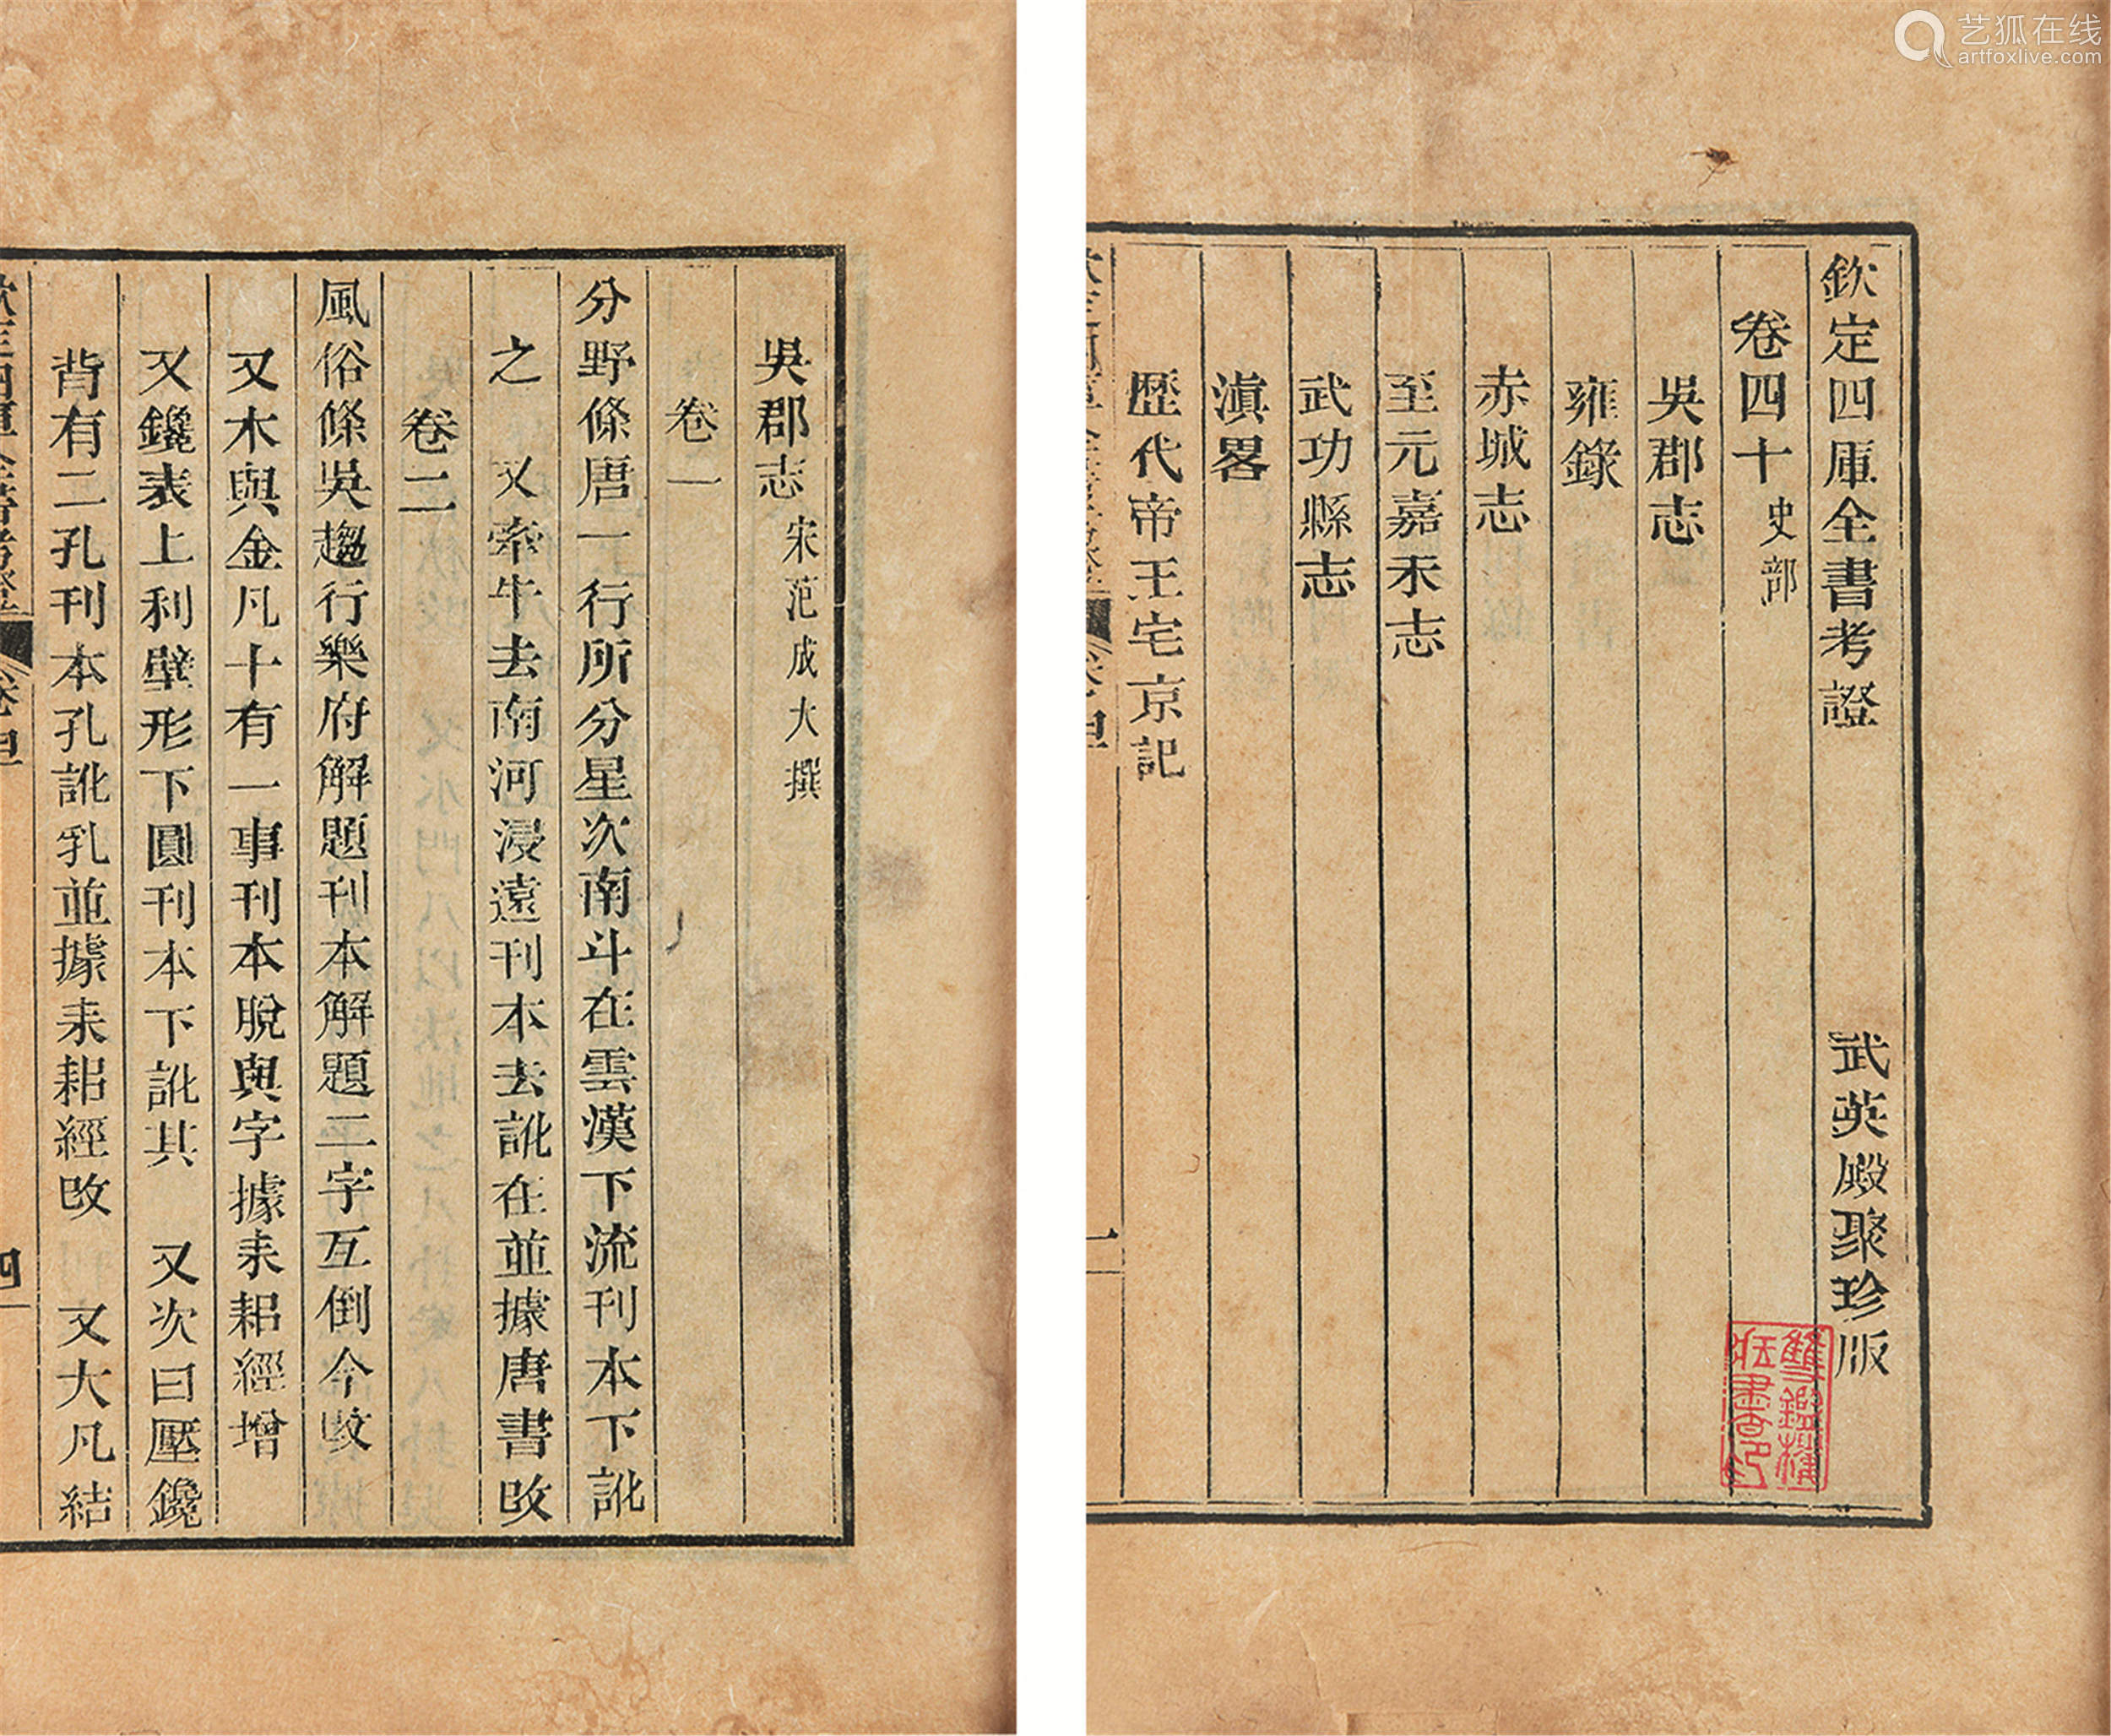 艺狐在线
artfoxlive.com
欽定四庫全書考證 武英殿聚珍版
卷四十 史部
吳郡志
雍錄
赤城志
至元嘉禾志
武功縣志
滇畧
歷代帝王宅京記
一
雙鑑樓
藏書印
吳郡志 宋范成大撰
卷一
分野條唐一行所分星次南斗在雲漢下流刊本下訛
之 又牽牛去南河浸遠刊本去訛在並據唐書改
卷二
風俗條吳趨行樂府解題刊本解題二字互倒今改
又木與金凡十有一事刊本脫與字據耒耜經增
又鑱表上利壁形下圓刊本下訛其 又次曰壓鑱
背有二孔刊本孔訛乳並據耒耜經改 又大凡結
四